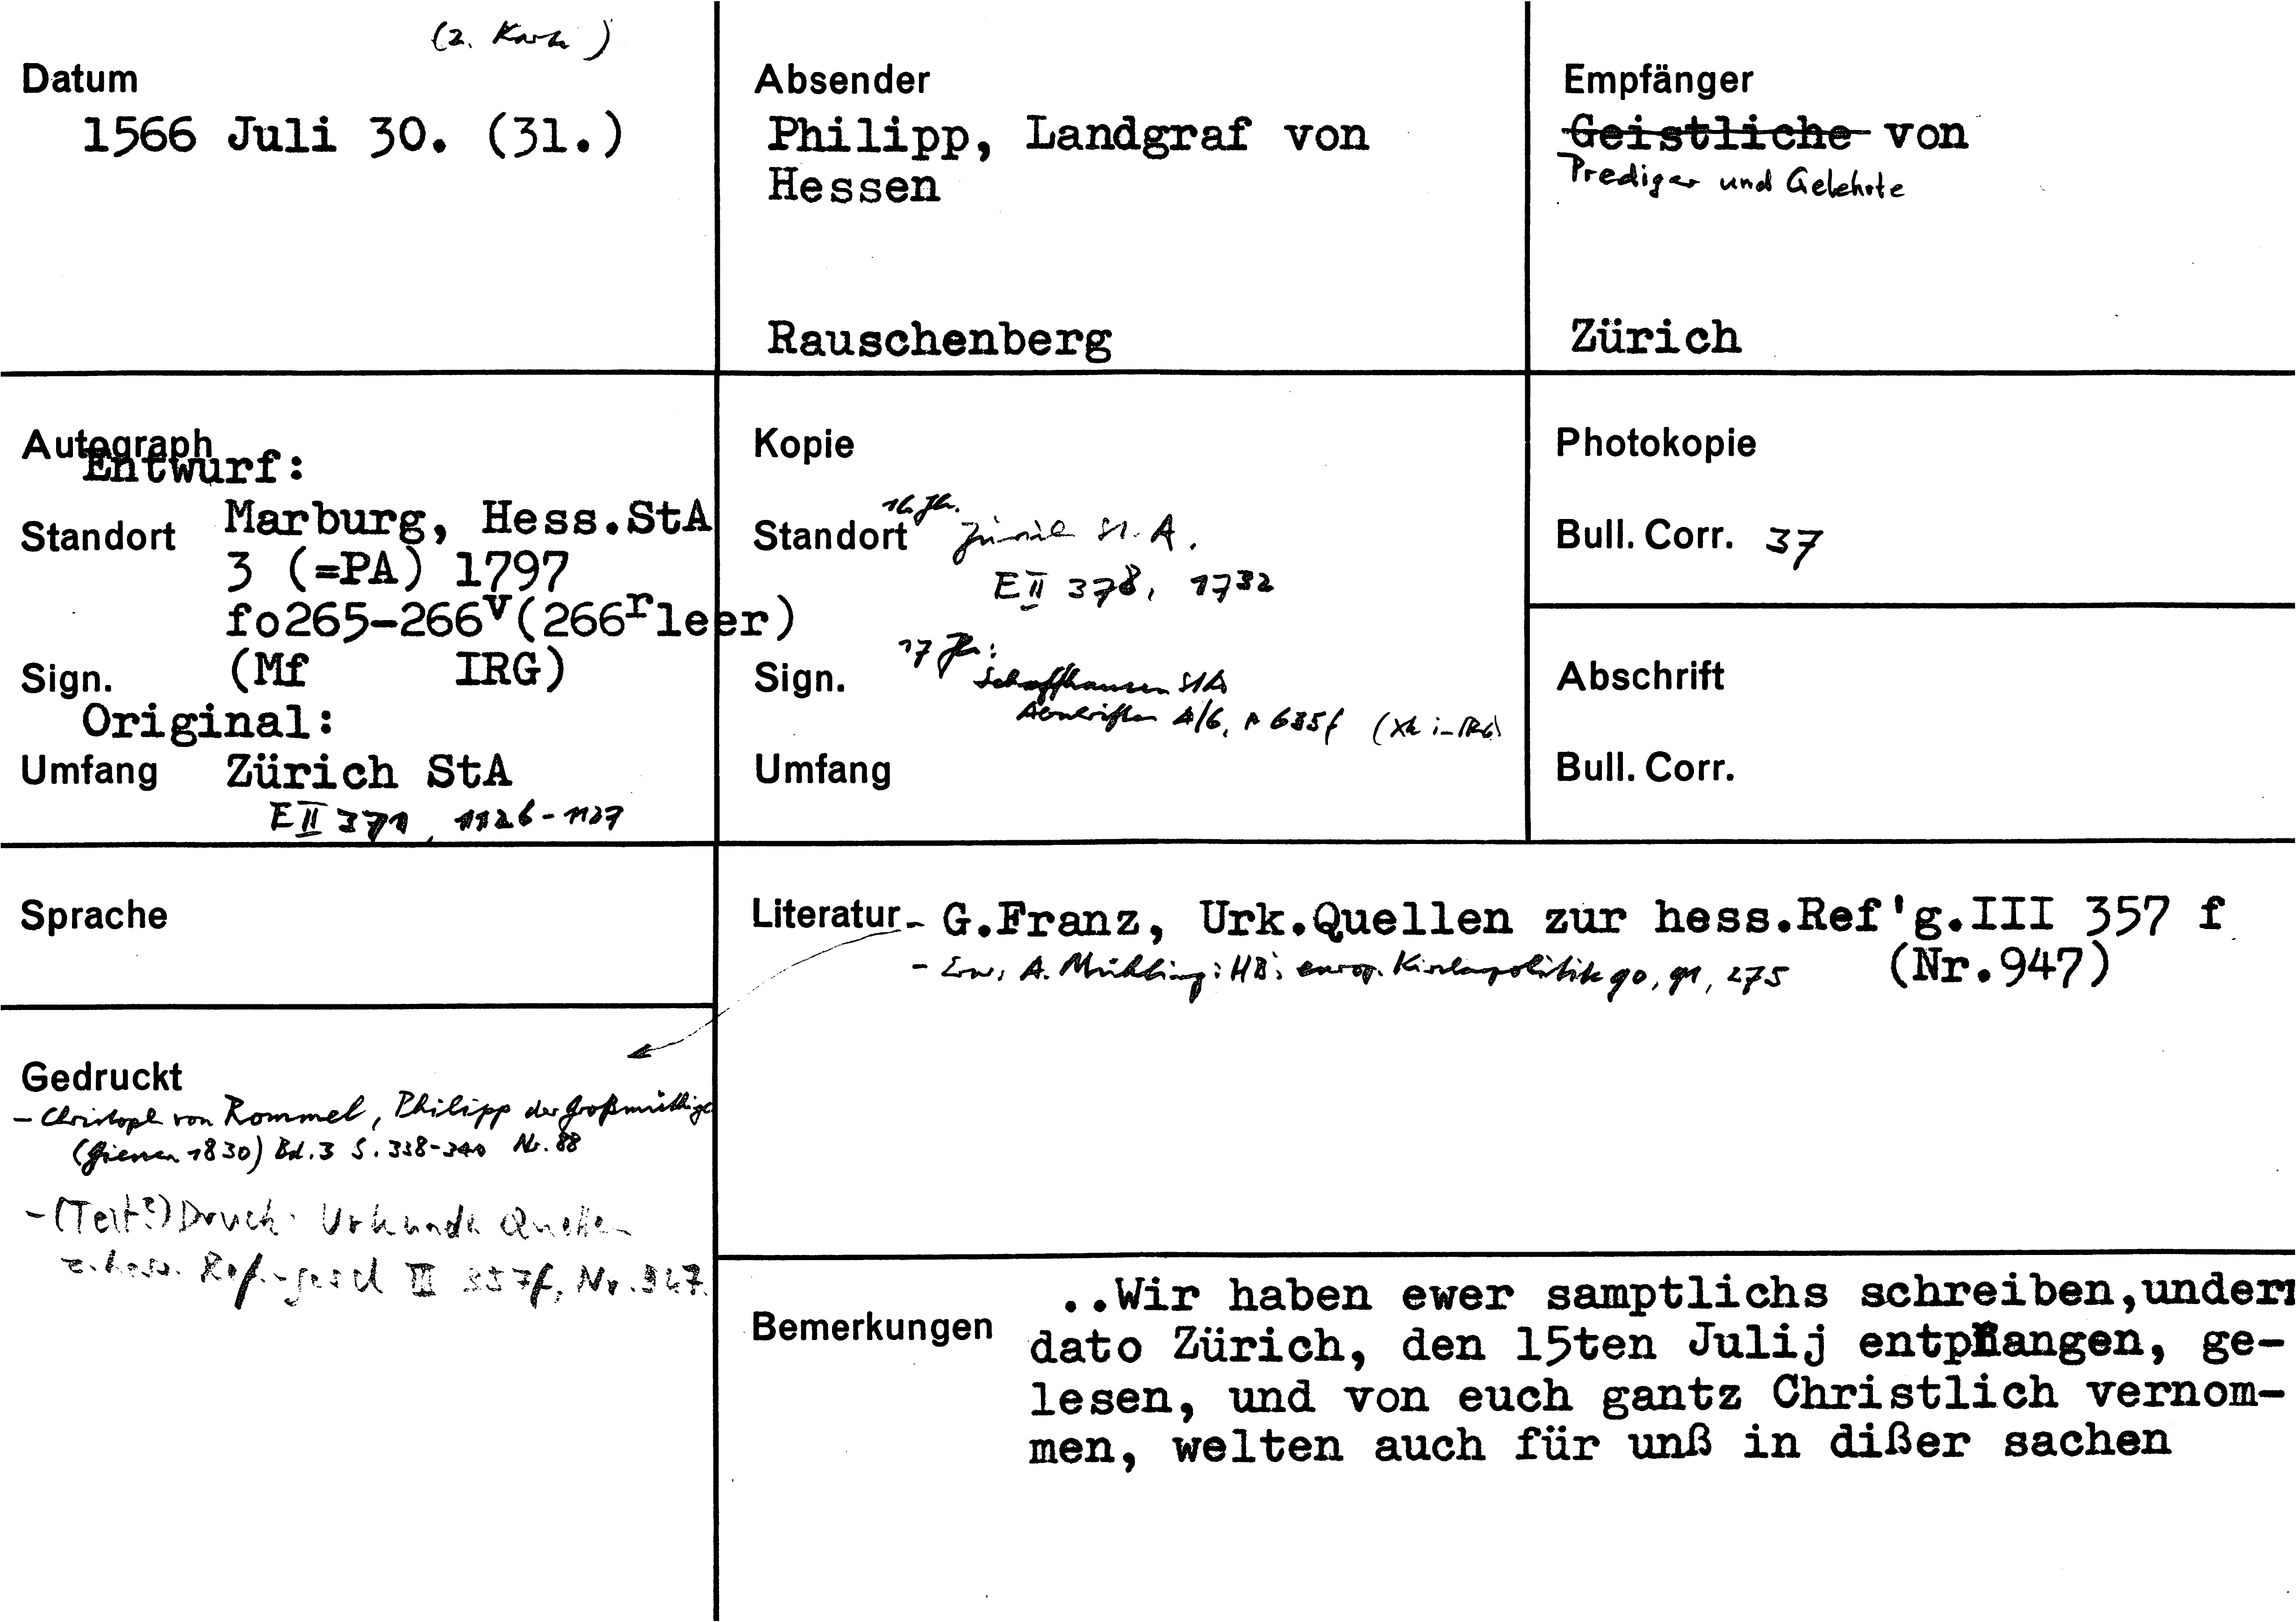 (2. Karte)
Datum
1566 Juli 30. (31.)
Absender
Philipp, Landgraf von
Hessen
Rauschenberg
Empfänger
Geistliche von
Prediger und Gelehrte
Zürich
Autograph
Entwurf:
Standort Marburg, Hess.StA
3 (=PA) 1797
fo265-266v(266rleer)
Sign. (Mf IRG)
Original:
Umfang Zürich StA
E II 371, 1126-1127
Kopie
16. Jh.
Standort Zürich St. A.
E II 378, 1732
17 Jh:
Sign. Schaffhausen StA
Abschriften A/6, 635f
Umfang
Photokopie
Bull. Corr. 37
Abschrift
Bull. Corr.
Sprache
Literatur - G.Franz, Urk.Quellen zur hess.Ref'g.III 357 f
(Nr.947)
- Erw. A. Mühling: HB's europ. Kirchenpolitik 90, 91, 275
Gedruckt
- Christoph von Rommel, Philipp der Großmüthige
(Giessen 1830) Bd. 3 S. 338-340 Nr. 88
- (Teil?) Druck: Urkundl. Quellen
z. hess. Ref.-gesch III 357f, Nr. 947.
Bemerkungen
..Wir haben ewer samptlichs schreiben,underm
dato Zürich, den 15ten Julij entpfangen, ge-
lesen, und von euch gantz Christlich vernom-
men, welten auch für unß in dißer sachen